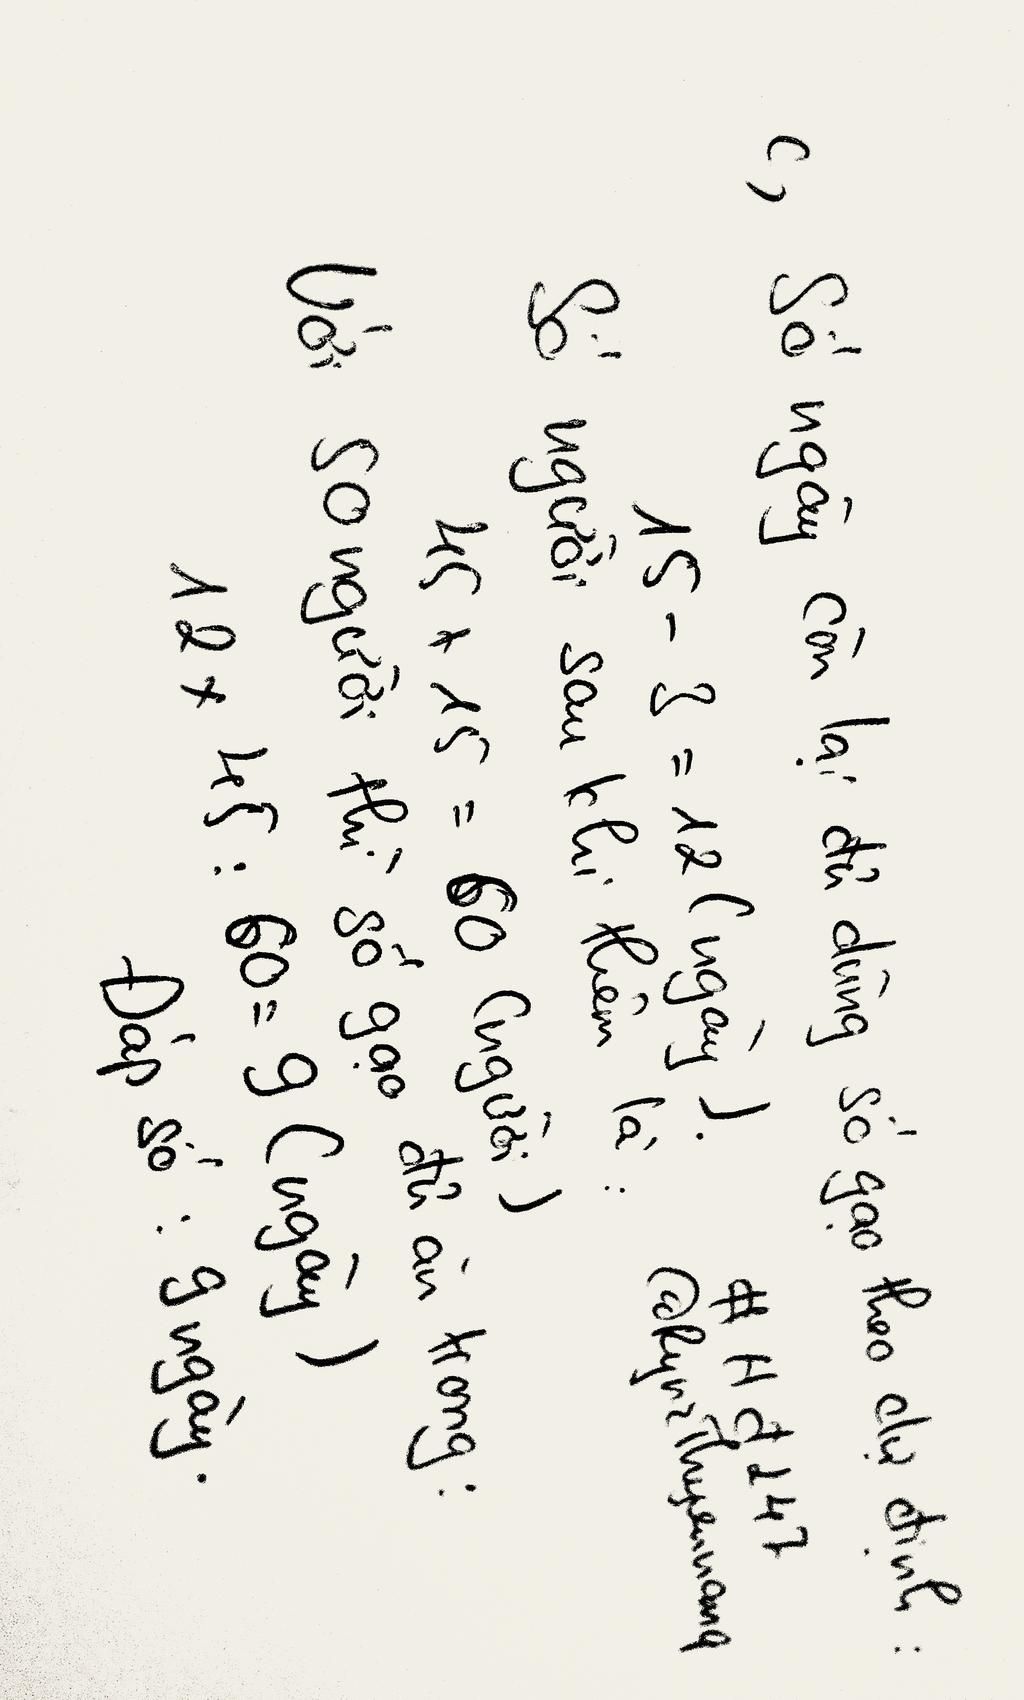 c, Số ngày còn lại đủ dùng số gạo theo dự định :
15 - 3 = 12 (ngày).
Số người sau khi thêm là :
45 + 15 = 60 (người)
Với 50 người thì số gạo đủ ăn trong :
12 x 45 : 60 = 9 (ngày)
Đáp số : 9 ngày.
# H đ 247